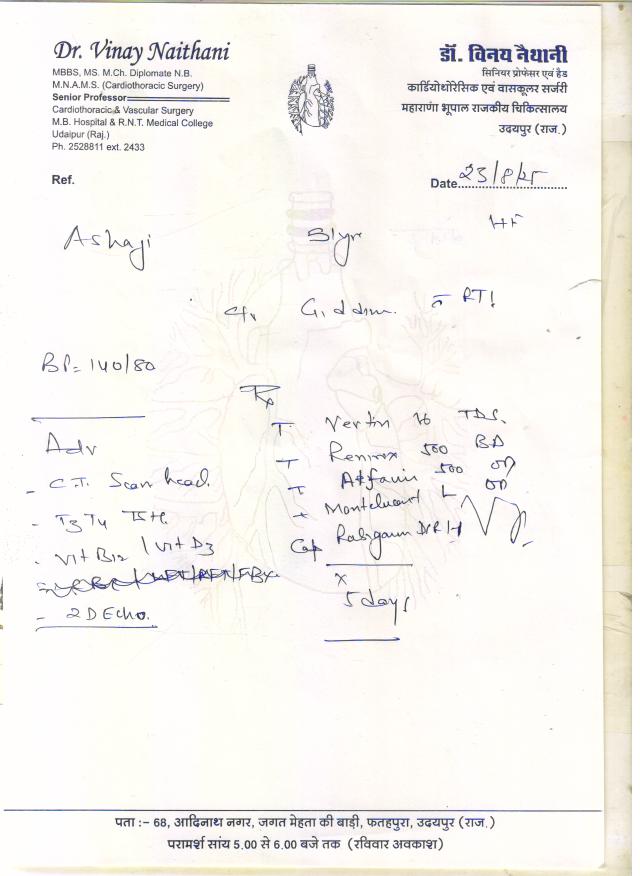 Dr. Vinay Naithani
MBBS, MS. M.Ch. Diplomate N.B.
M.N.A.M.S. (Cardiothoracic Surgery)
Senior Professor
Cardiothoracic & Vascular Surgery
M.B. Hospital & R.N.T. Medical College
Udaipur (Raj.)
Ph. 2528811 ext. 2433
डॉ. विनय नैथानी
सिनियर प्रोफेसर एवं हैड
कार्डियोथोरेसिक एवं वासकूलर सर्जरी
महाराणा भूपाल राजकीय चिकित्सालय
उदयपुर (राज.)
Ref.
Date 23/8/25
Ashaji 51yr
BP= 140/80
Rx
T Vertin 16 TDS.
T 500 BD
T 500 OD
Montelucast L OD
Cap
x
5 days
Adv
- C.T. Scan head.
- T3 T4 TSH.
- Vit B12 / Vit D3
- 2D Echo.
पता :– 68, आदिनाथ नगर, जगत मेहता की बाड़ी, फतहपुरा, उदयपुर (राज.)
परामर्श सांय 5.00 से 6.00 बजे तक (रविवार अवकाश)